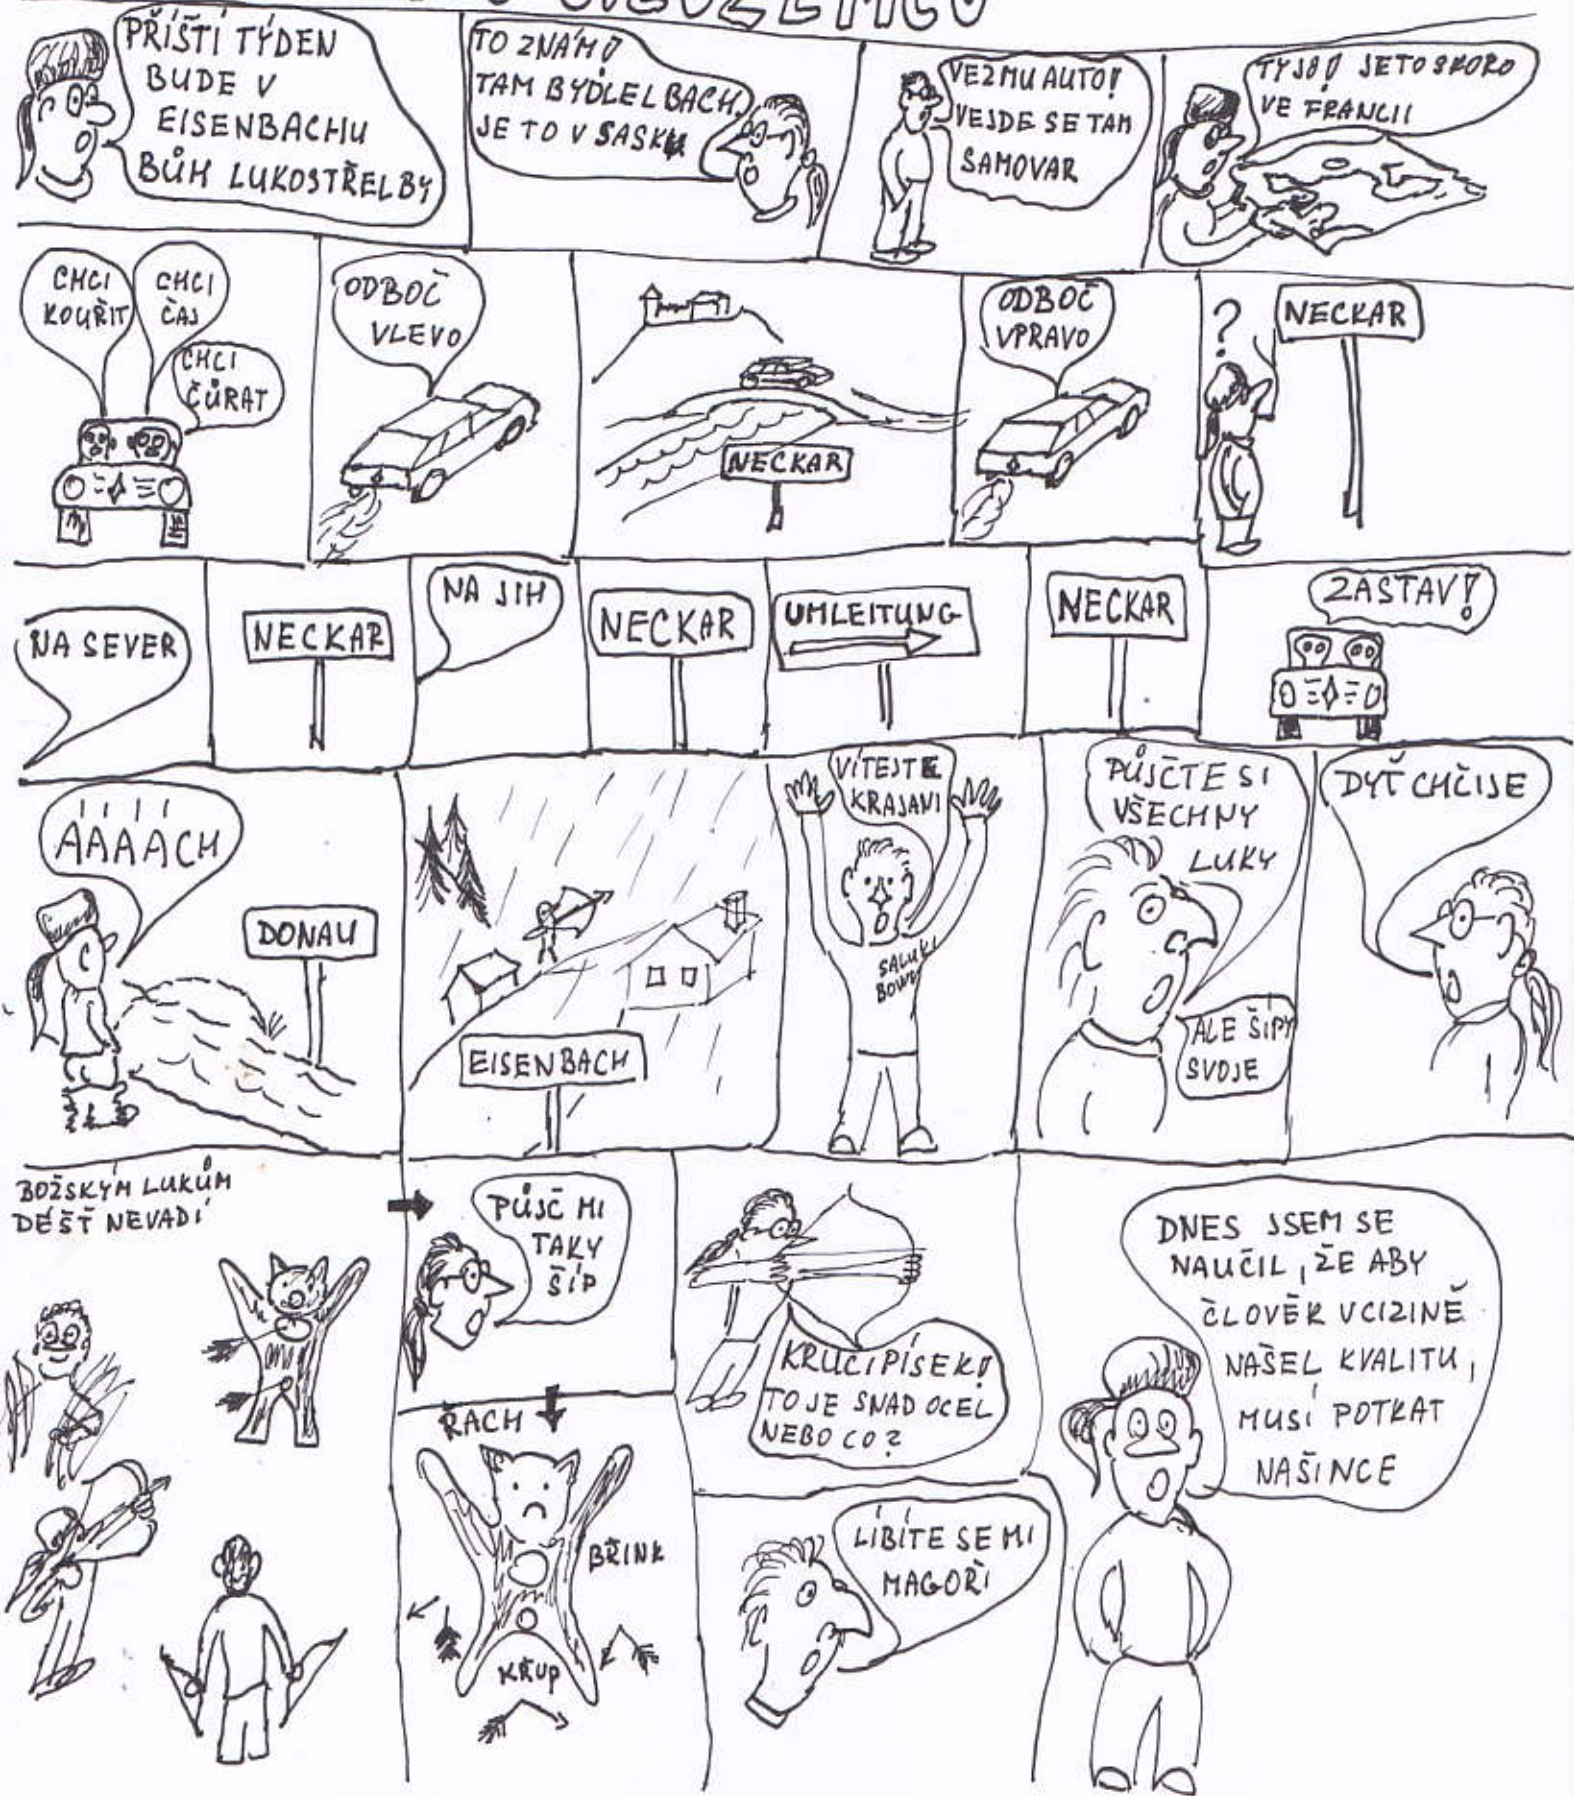 PŘÍŠTÍ TÝDEN
BUDE V
EISENBACHU
BŮH LUKOSTŘELBY
TO ZNÁM!
TAM BYDLEL BACH,
JE TO V SASKU
VEZMU AUTO!
VEJDE SE TAM
SAMOVAR
TYJO! JE TO SKORO
VE FRANCII
CHCI
KOUŘIT
CHCI
ČAJ
CHCI
ČŮRAT
ODBOČ
VLEVO
NECKAR
ODBOČ
VPRAVO
?
NECKAR
NA SEVER
NECKAR
NA JIH
NECKAR
UMLEITUNG
NECKAR
ZASTAV!
ÁÁÁÁCH
DONAU
EISENBACH
VÍTEJTE
KRAJANI
SALUKI
BOWS
PŮJČTE SI
VŠECHNY
LUKY
ALE ŠÍPY
SVOJE
DYŤ CHČIJE
BOŽSKÝM LUKŮM
DÉŠŤ NEVADÍ
PŮJČ MI
TAKY
ŠÍP
ŘACH
BŘINK
KŘUP
KRUCIPÍSEK!
TO JE SNAD OCEL
NEBO CO?
LÍBÍTE SE MI
MAGOŘI
DNES JSEM SE
NAUČIL, ŽE ABY
ČLOVĚK V CIZINĚ
NAŠEL KVALITU,
MUSÍ POTKAT
NAŠINCE